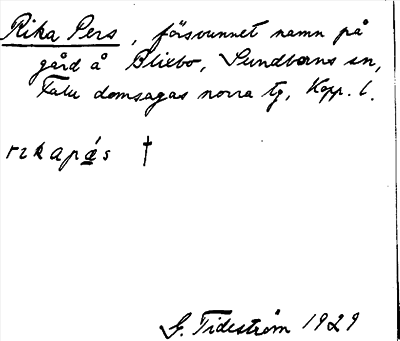 Rika Pers, försvunnet namn på
gård å Blixbo, Sundborns sn,
Falu domsagas norra tg, Kopp. l.
rikapæ̀s †
G. Tideström 1929